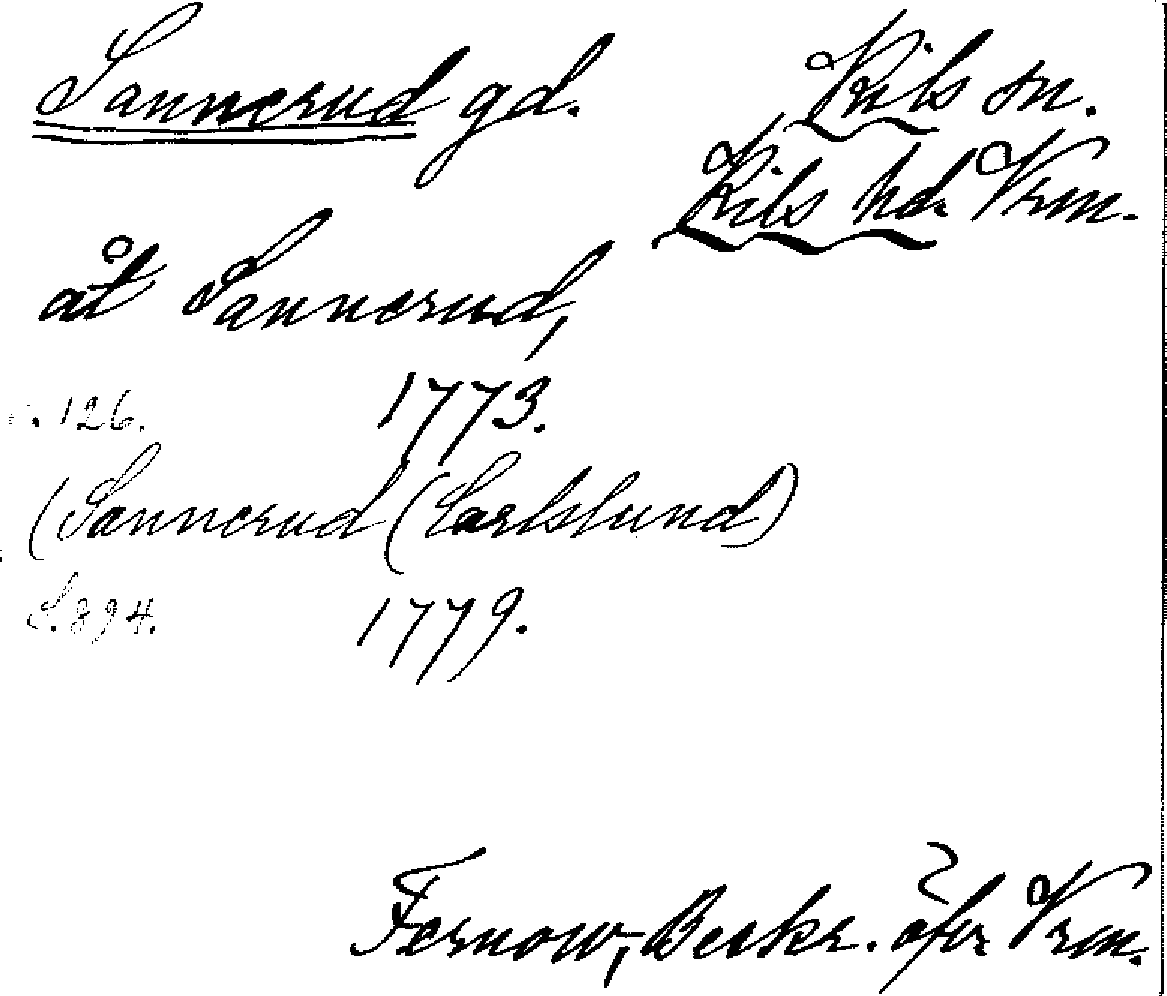 Sannerud gd. Kils sn.
Kils hd. Vrm.
åt Sannerud,
s. 126. 1773.
(Sannerud (Carlslund)
S. 894. 1779.
Fernow, Beskr. öfver Vrm.